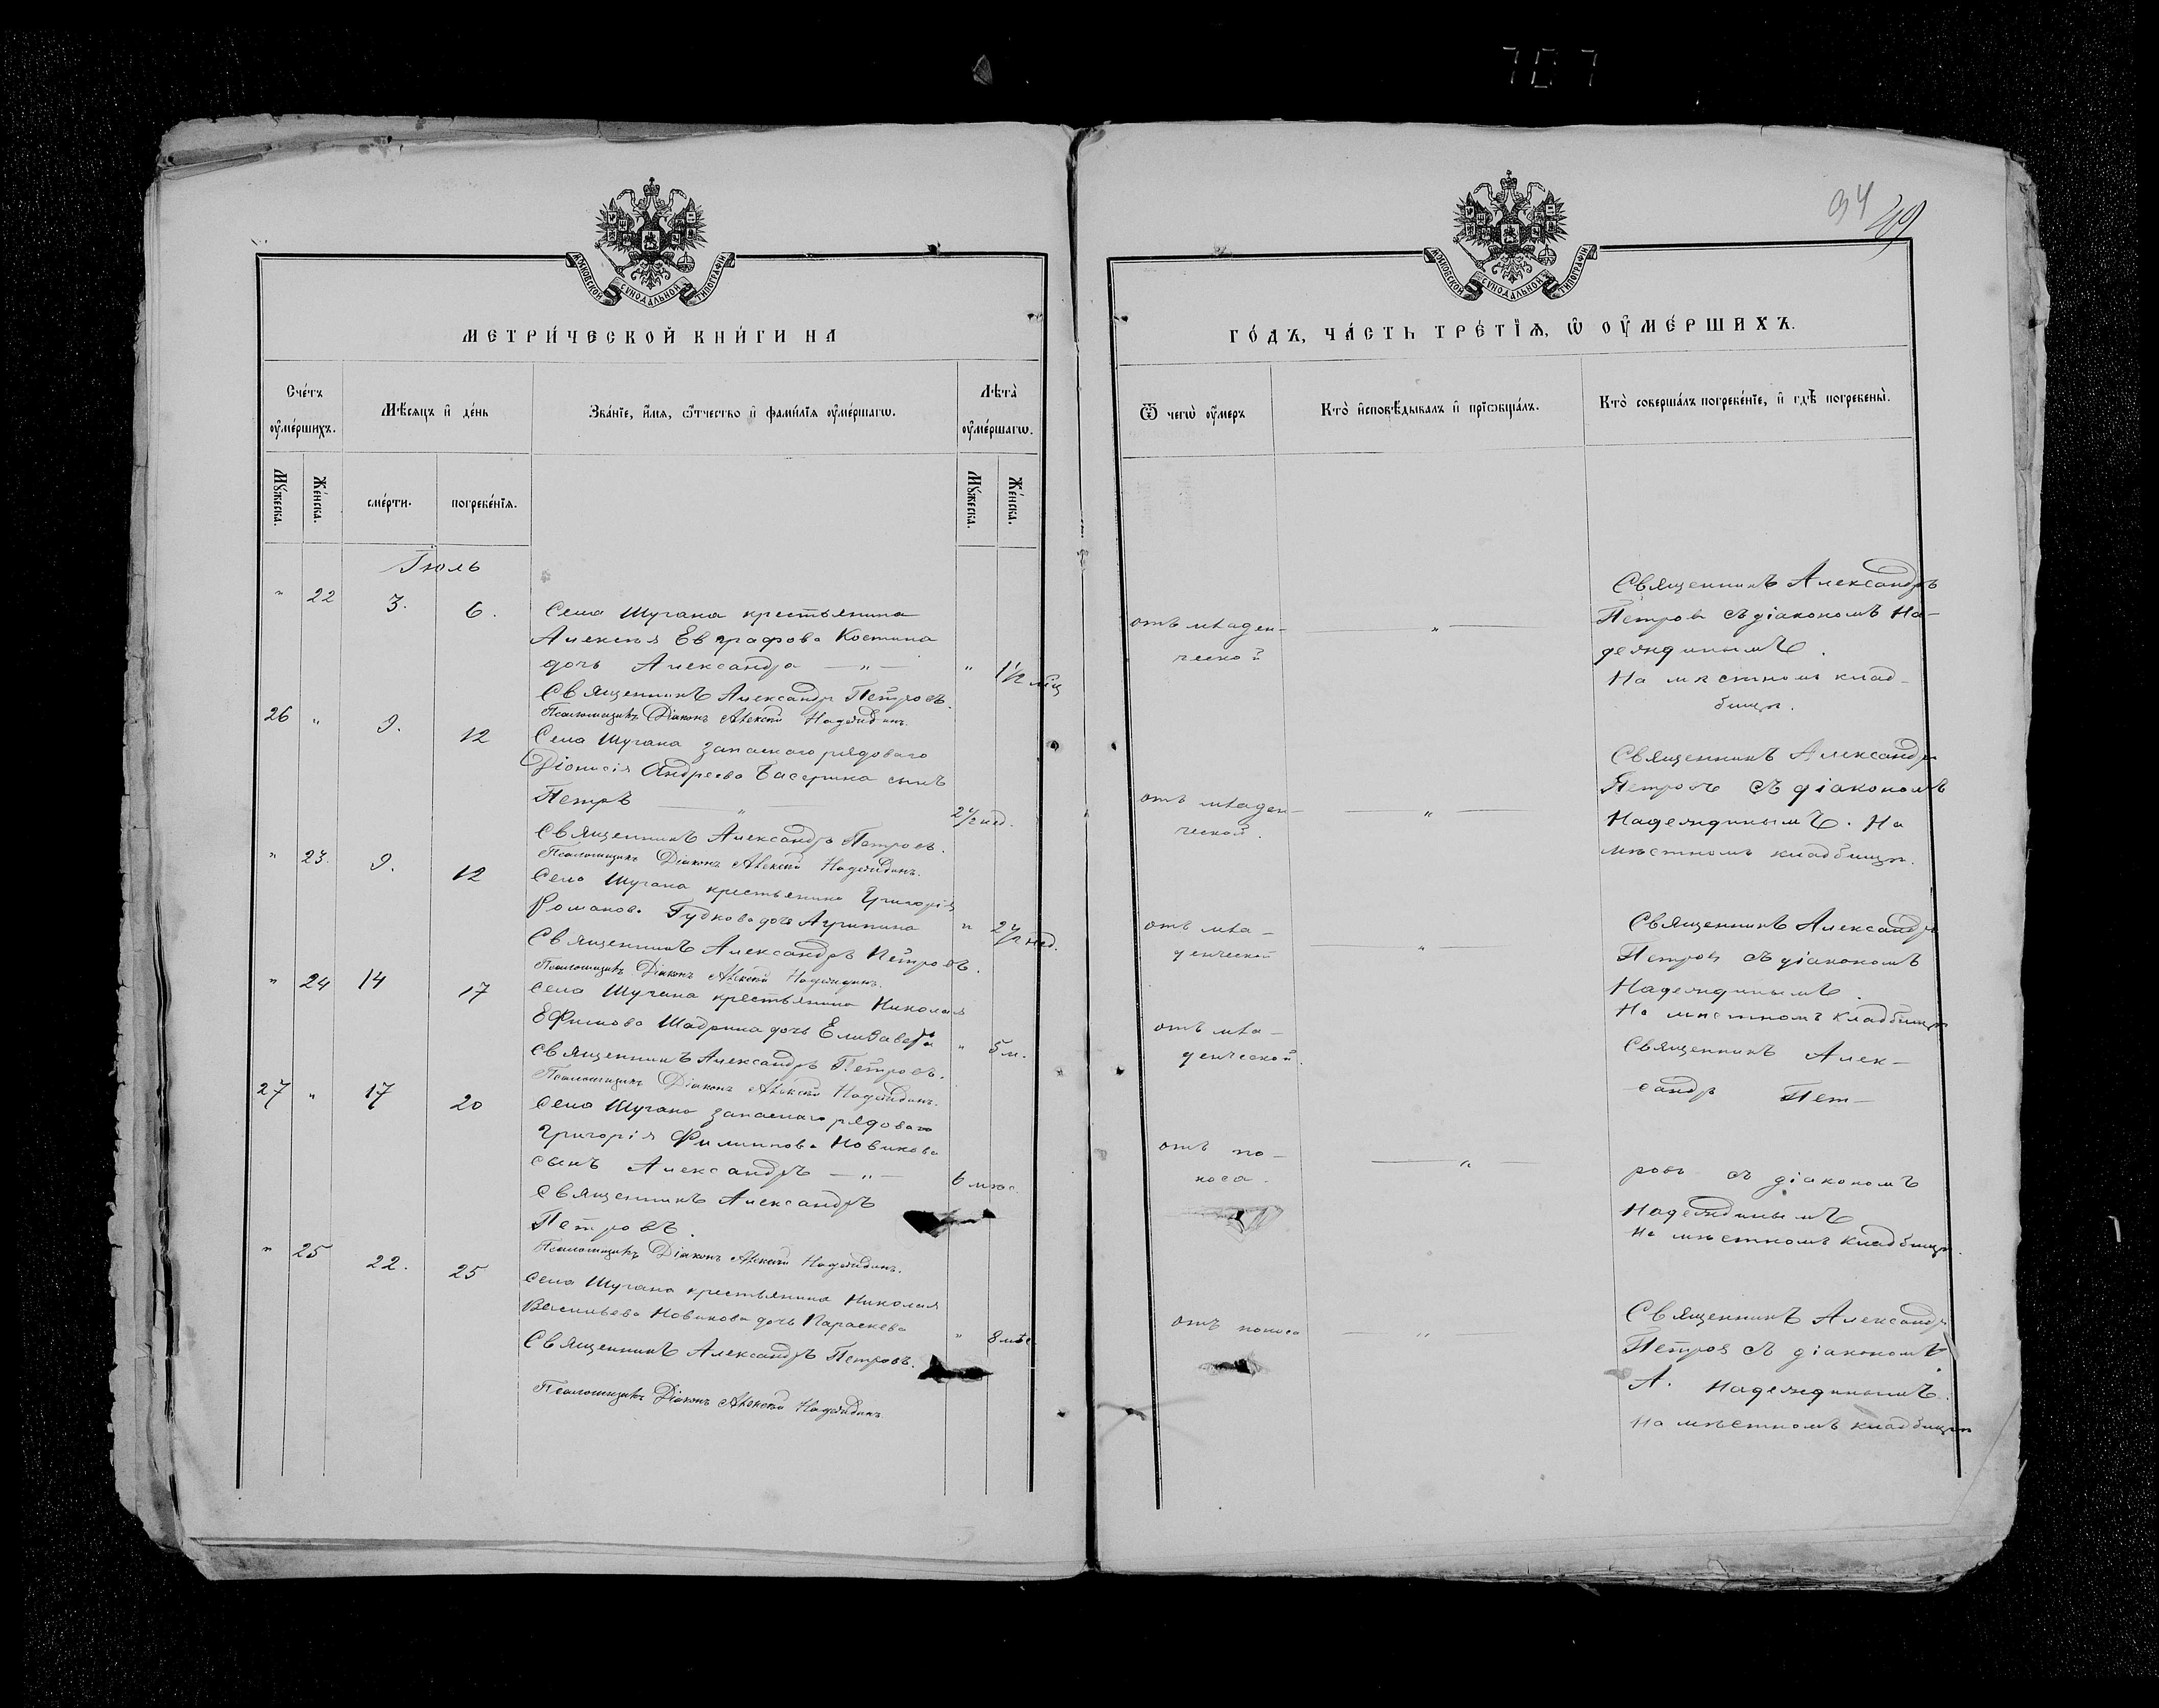 707
34
49
МОСКОВСКОЙ СѴНОДАЛЬНОЙ ТИПОГРАФІИ
МЕТРИ́ЧЕСКОЙ КНИ́ГИ НА
Сче́тъ оу҆ме́ршихъ.
Мѣ́сяцъ и҆ де́нь
Зва́нїе, и҆́мѧ, ѻ҆́тчество и҆ фами́лїѧ оу҆ме́ршагѡ.
Лѣ́та оу҆ме́ршагѡ.
Мꙋ́жеска.
Же́нска.
сме́рти.
погребе́нїѧ.
Мꙋ́жеска.
Же́нска.
Іюль
" 22 3. 6. Села Шугана крестьянина
Алексѣя Евграфова Костина
дочь Александра — " — " 1½ мѣс
Священникъ Александръ Петровъ.
Псаломщикъ Діаконъ Алексѣй Надеждинъ.
26 " 9. 12 Села Шугана запаснаго рядоваго
Діонисія Андреева сынъ
Петръ — " — 2½ нед.
Священникъ Александръ Петровъ.
Псаломщикъ Діаконъ Алексѣй Надеждинъ.
" 23. 9. 12 Села Шугана крестьянина Григорія
Романова Гудкова дочь Агрипина " 2½ нед.
Священникъ Александръ Петровъ.
Псаломщикъ Діаконъ Алексѣй Надеждинъ.
" 24 14 17 Села Шугана крестьянина Николая
Ефимова Шадрина дочь Елизавета " 5 м.
Священникъ Александръ Петровъ.
Псаломщикъ Діаконъ Алексѣй Надеждинъ.
27 " 17 20 Села Шугана запаснаго рядового
Григорія Филиппова Новикова
сынъ Александръ — " — 6 мѣс.
Священникъ Александръ
Петровъ.
Псаломщикъ Діаконъ Алексѣй Надеждинъ.
" 25 22. 25 Села Шугана крестьянина Николая
Васильева Новикова дочь Параскева " 8 мѣс
Священникъ Александръ Петровъ.
Псаломщикъ Діаконъ Алексѣй Надеждинъ
МОСКОВСКОЙ СѴНОДАЛЬНОЙ ТИПОГРАФІИ
ГО́ДЪ, ЧА́СТЬ ТРЕ́ТЇѦ, Ѡ҆ ОУ҆МЕ́РШИХЪ.
Ѿ чегѡ̀ оу҆́меръ
Кто̀ и҆сповѣ́дывалъ и҆ прїѡбща́лъ.
Кто̀ соверша́лъ погребе́нїе, и҆ гдѣ̀ погребены̀.
отъ младен-
ческой
"
Священникъ Александръ
Петровъ съ діакономъ На-
деждинымъ.
На мѣстномъ клад-
бищѣ.
отъ младен-
ческой.
"
Священникъ Александръ
Петровъ съ діакономъ
Надеждинымъ. На
мѣстномъ кладбищѣ.
отъ мла-
денческой
"
Священникъ Александръ
Петровъ съ діакономъ
Надеждинымъ.
На мѣстномъ кладбищѣ
отъ мла-
денческой.
Священникъ Алек-
сандръ Пет-
отъ по-
носа.
"
ровъ съ діакономъ
Надеждинымъ
На мѣстномъ кладбищѣ.
отъ поноса
"
Священникъ Александръ
Петровъ съ діакономъ
А. Надеждинымъ.
На мѣстномъ кладбищѣ